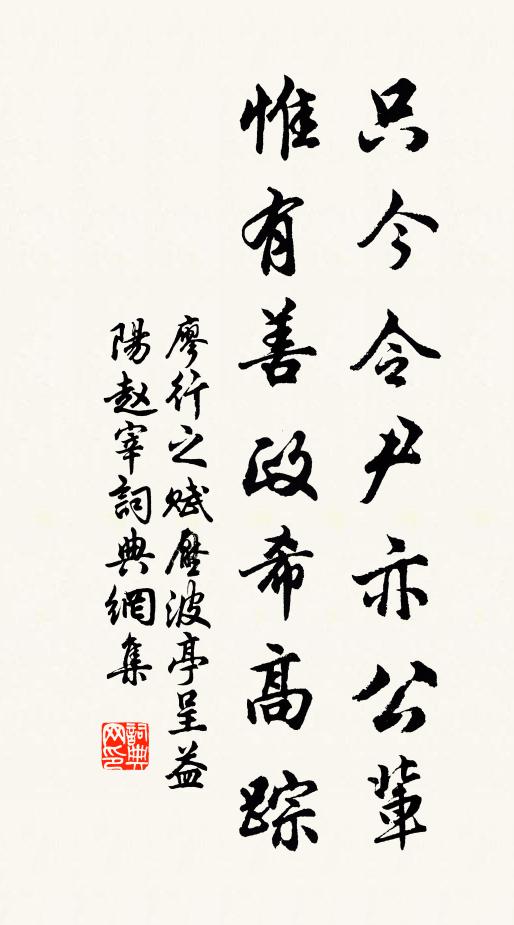 只今令尹亦公輩
惟有善政希高踪
廖行之賦壓波亭呈益
陽趙宰詞典網集
詞典網印